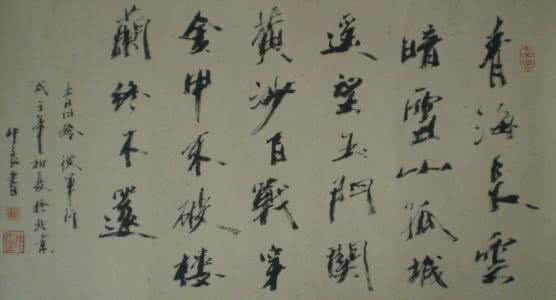 青海長雲
暗雪山孤城
遥望玉門關
黄沙百戰穿
金甲未破樓
蘭終不還
王昌齡 從軍行
年初夏於北京
書